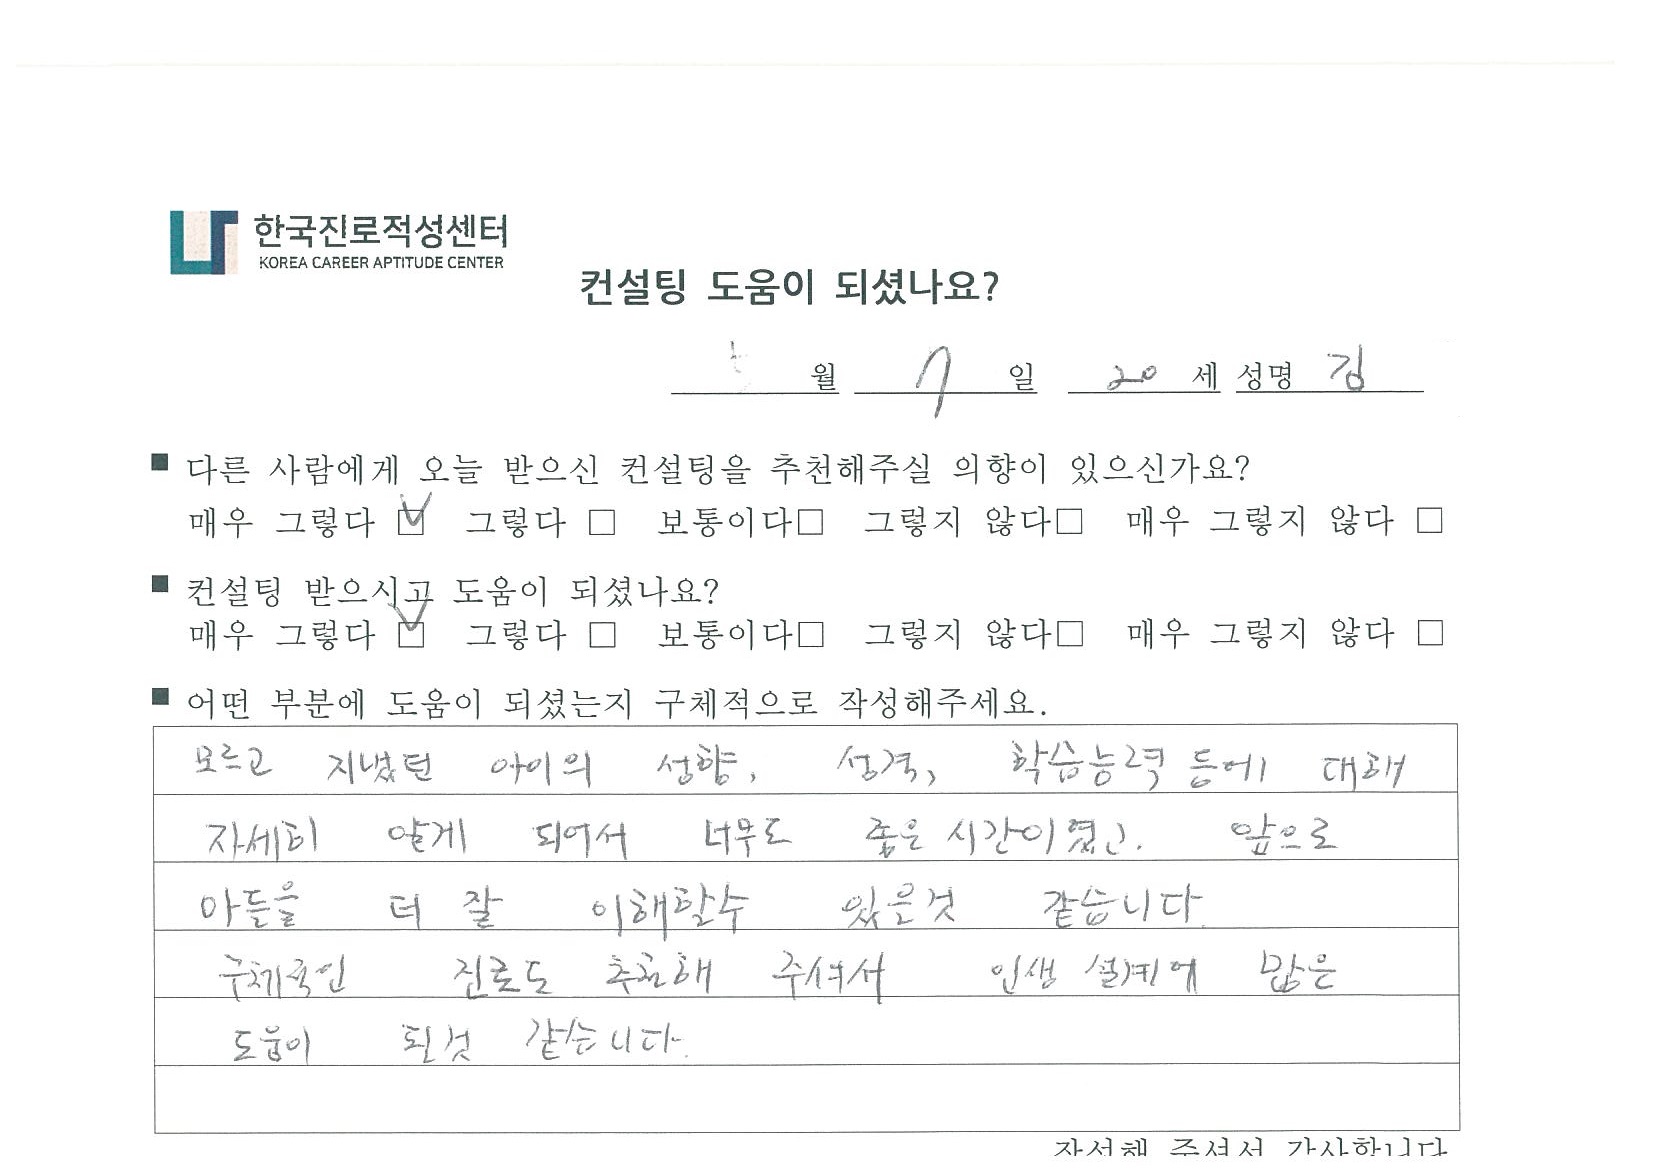 한국진로적성센터
KOREA CAREER APTITUDE CENTER
컨설팅 도움이 되셨나요?
월 7 일 20 세 성명 김
■ 다른 사람에게 오늘 받으신 컨설팅을 추천해주실 의향이 있으신가요?
매우 그렇다 ☑ 그렇다 □ 보통이다□ 그렇지 않다□ 매우 그렇지 않다 □
■ 컨설팅 받으시고 도움이 되셨나요?
매우 그렇다 ☑ 그렇다 □ 보통이다□ 그렇지 않다□ 매우 그렇지 않다 □
■ 어떤 부분에 도움이 되셨는지 구체적으로 작성해주세요.
모르고 지냈던 아이의 성향, 성격, 학습능력 등에 대해
자세히 알게 되어서 너무도 좋은 시간이였고. 앞으로
아들을 더 잘 이해할수 있은것 같습니다.
구체적인 진로도 추천해 주셔서 인생 설계에 많은
도움이 될것 같습니다.
작성해 주셔서 감사합니다